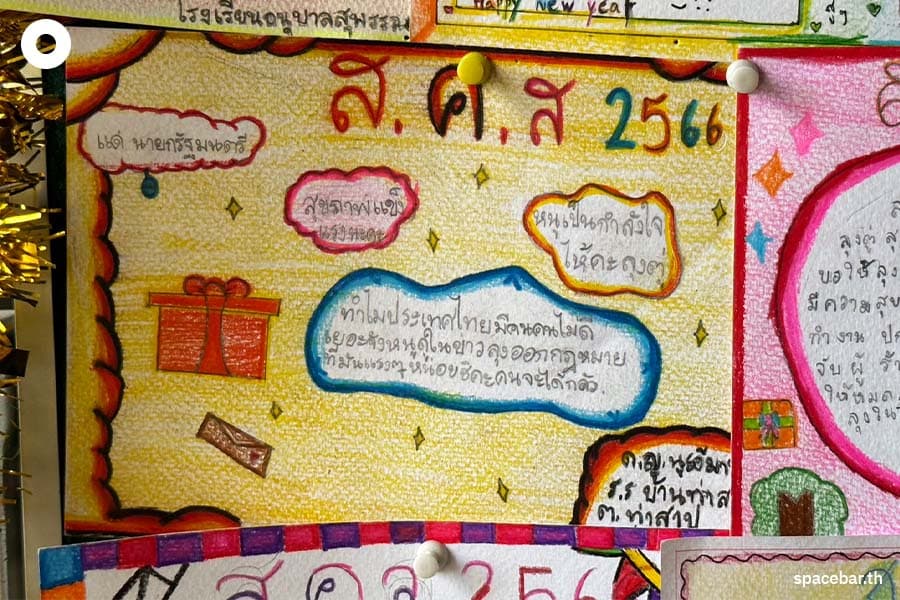 โรงเรียนอนุบาลสุพรรณ
Happy New year
ส.ค.ส 2566
แด่ นายกรัฐมนตรี
สุขภาพแข็ง
แรงนะคะ
หนูเป็นกำลังใจ
ให้คะลุงตู่
ทำไมประเทศไทยมีคนคนไม่ดี
เยอะจังหนูดูในข่าวลุงออกกฎหมาย
ที่มันแรงๆหน่อยซิคะคนจะได้กลัว.
ด.ญ.
ร.ร บ้านท่าส
ต.ท่าสาป
ลุงตู่ สุ
ขอให้ลุง
มีความสุข
ทำงาน ปร
จับ ผู้ ร้
ให้หมด
ส ค ส 256
spacebar.th